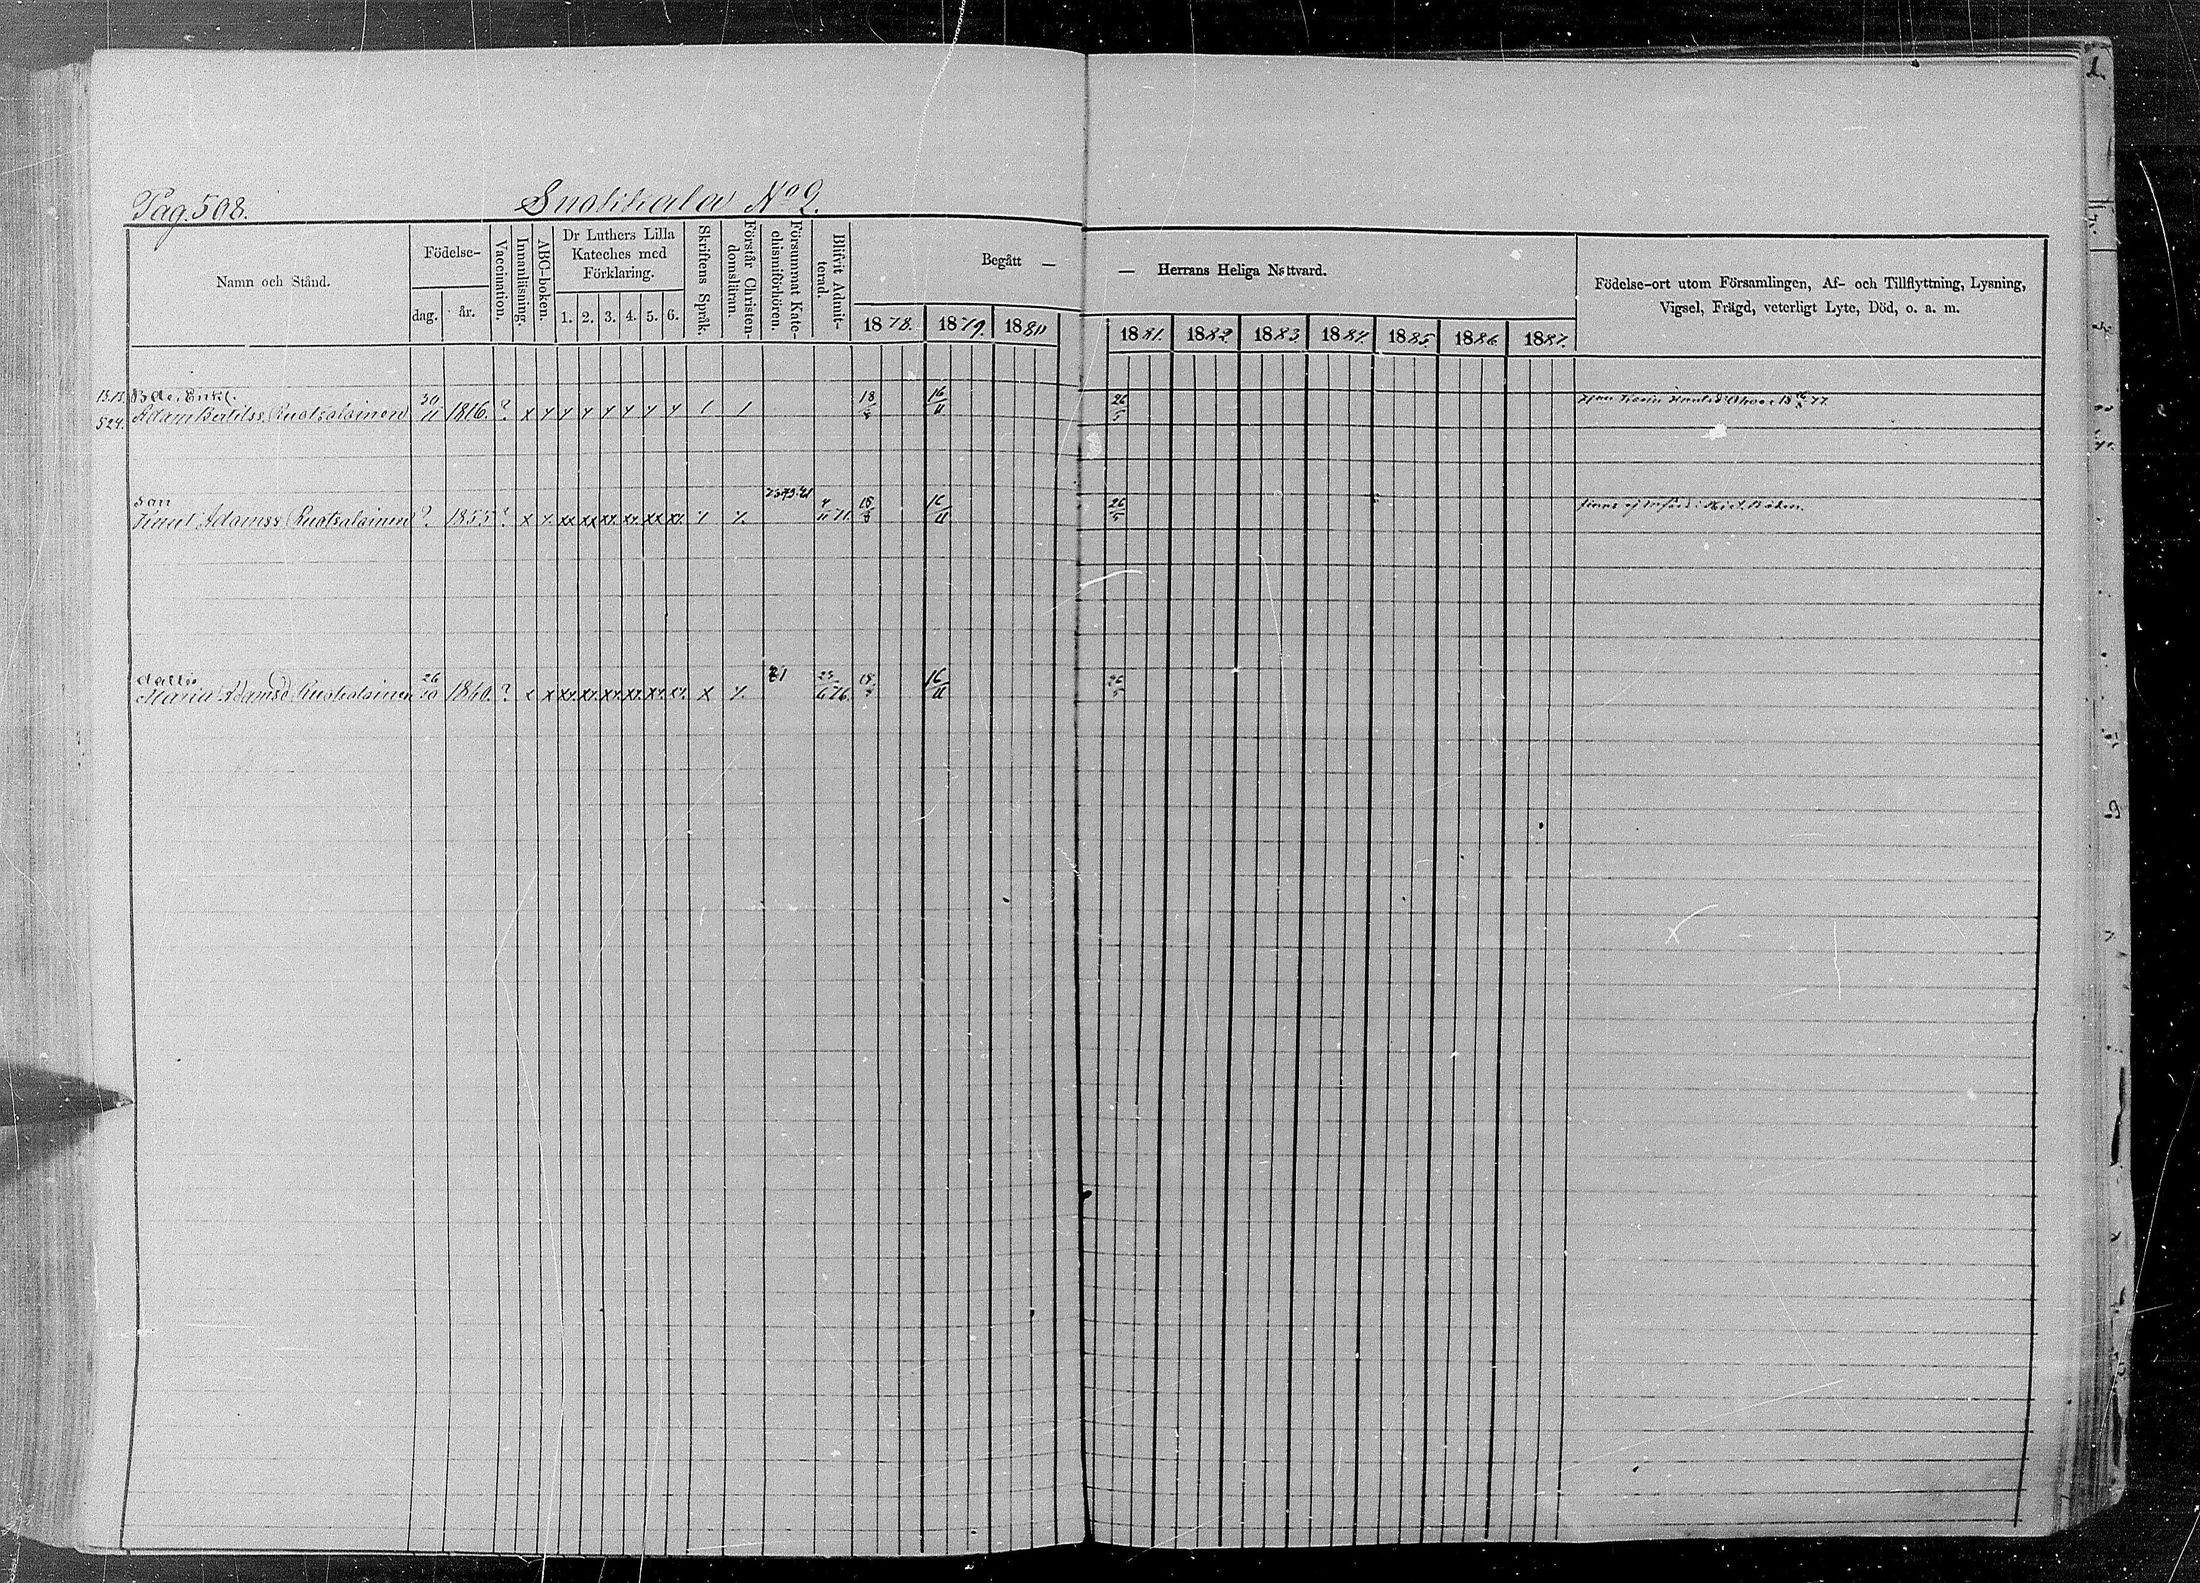 Pag. 508.
Suokkala No 2.
Namn och Stånd.
Födelse-
dag.
år.
Vaccination.
Innanläsning.
ABC-boken.
Dr Luthers Lilla
Kateches med
Förklaring.
1. 2. 3. 4. 5. 6.
Skriftens Språk.
Förstår Christen-
domsläran.
Försummat Kate-
chismiförhören.
Blifvit Admit-
terad.
Begått —
— Herrans Heliga Nattvard.
1878. 1879. 1880 1881. 1882. 1883. 1884. 1885. 1886. 1887.
Födelse-ort utom Församlingen, Af- och Tillflyttning, Lysning,
Vigsel, Frägd, veterligt Lyte, Död, o. a. m.
Bde, Enkl.
524. Adam Bertilss. Ruotsalainen 30/11 1816. ? x y y y y y y y / / 18/8 16/11 26/5
Son
Knut Adamss Ruotsalainen ? 1855 ? x y. xx xx xx. xx. xx xx. 4/11 71. 18/8 16/11 26/5
Maria Adamsd Ruotsalainen 26/10 1860. ? x x xx. xx. xx. xx. xx. xx. x 81 25/6 76. 18/8 16/11 26/5